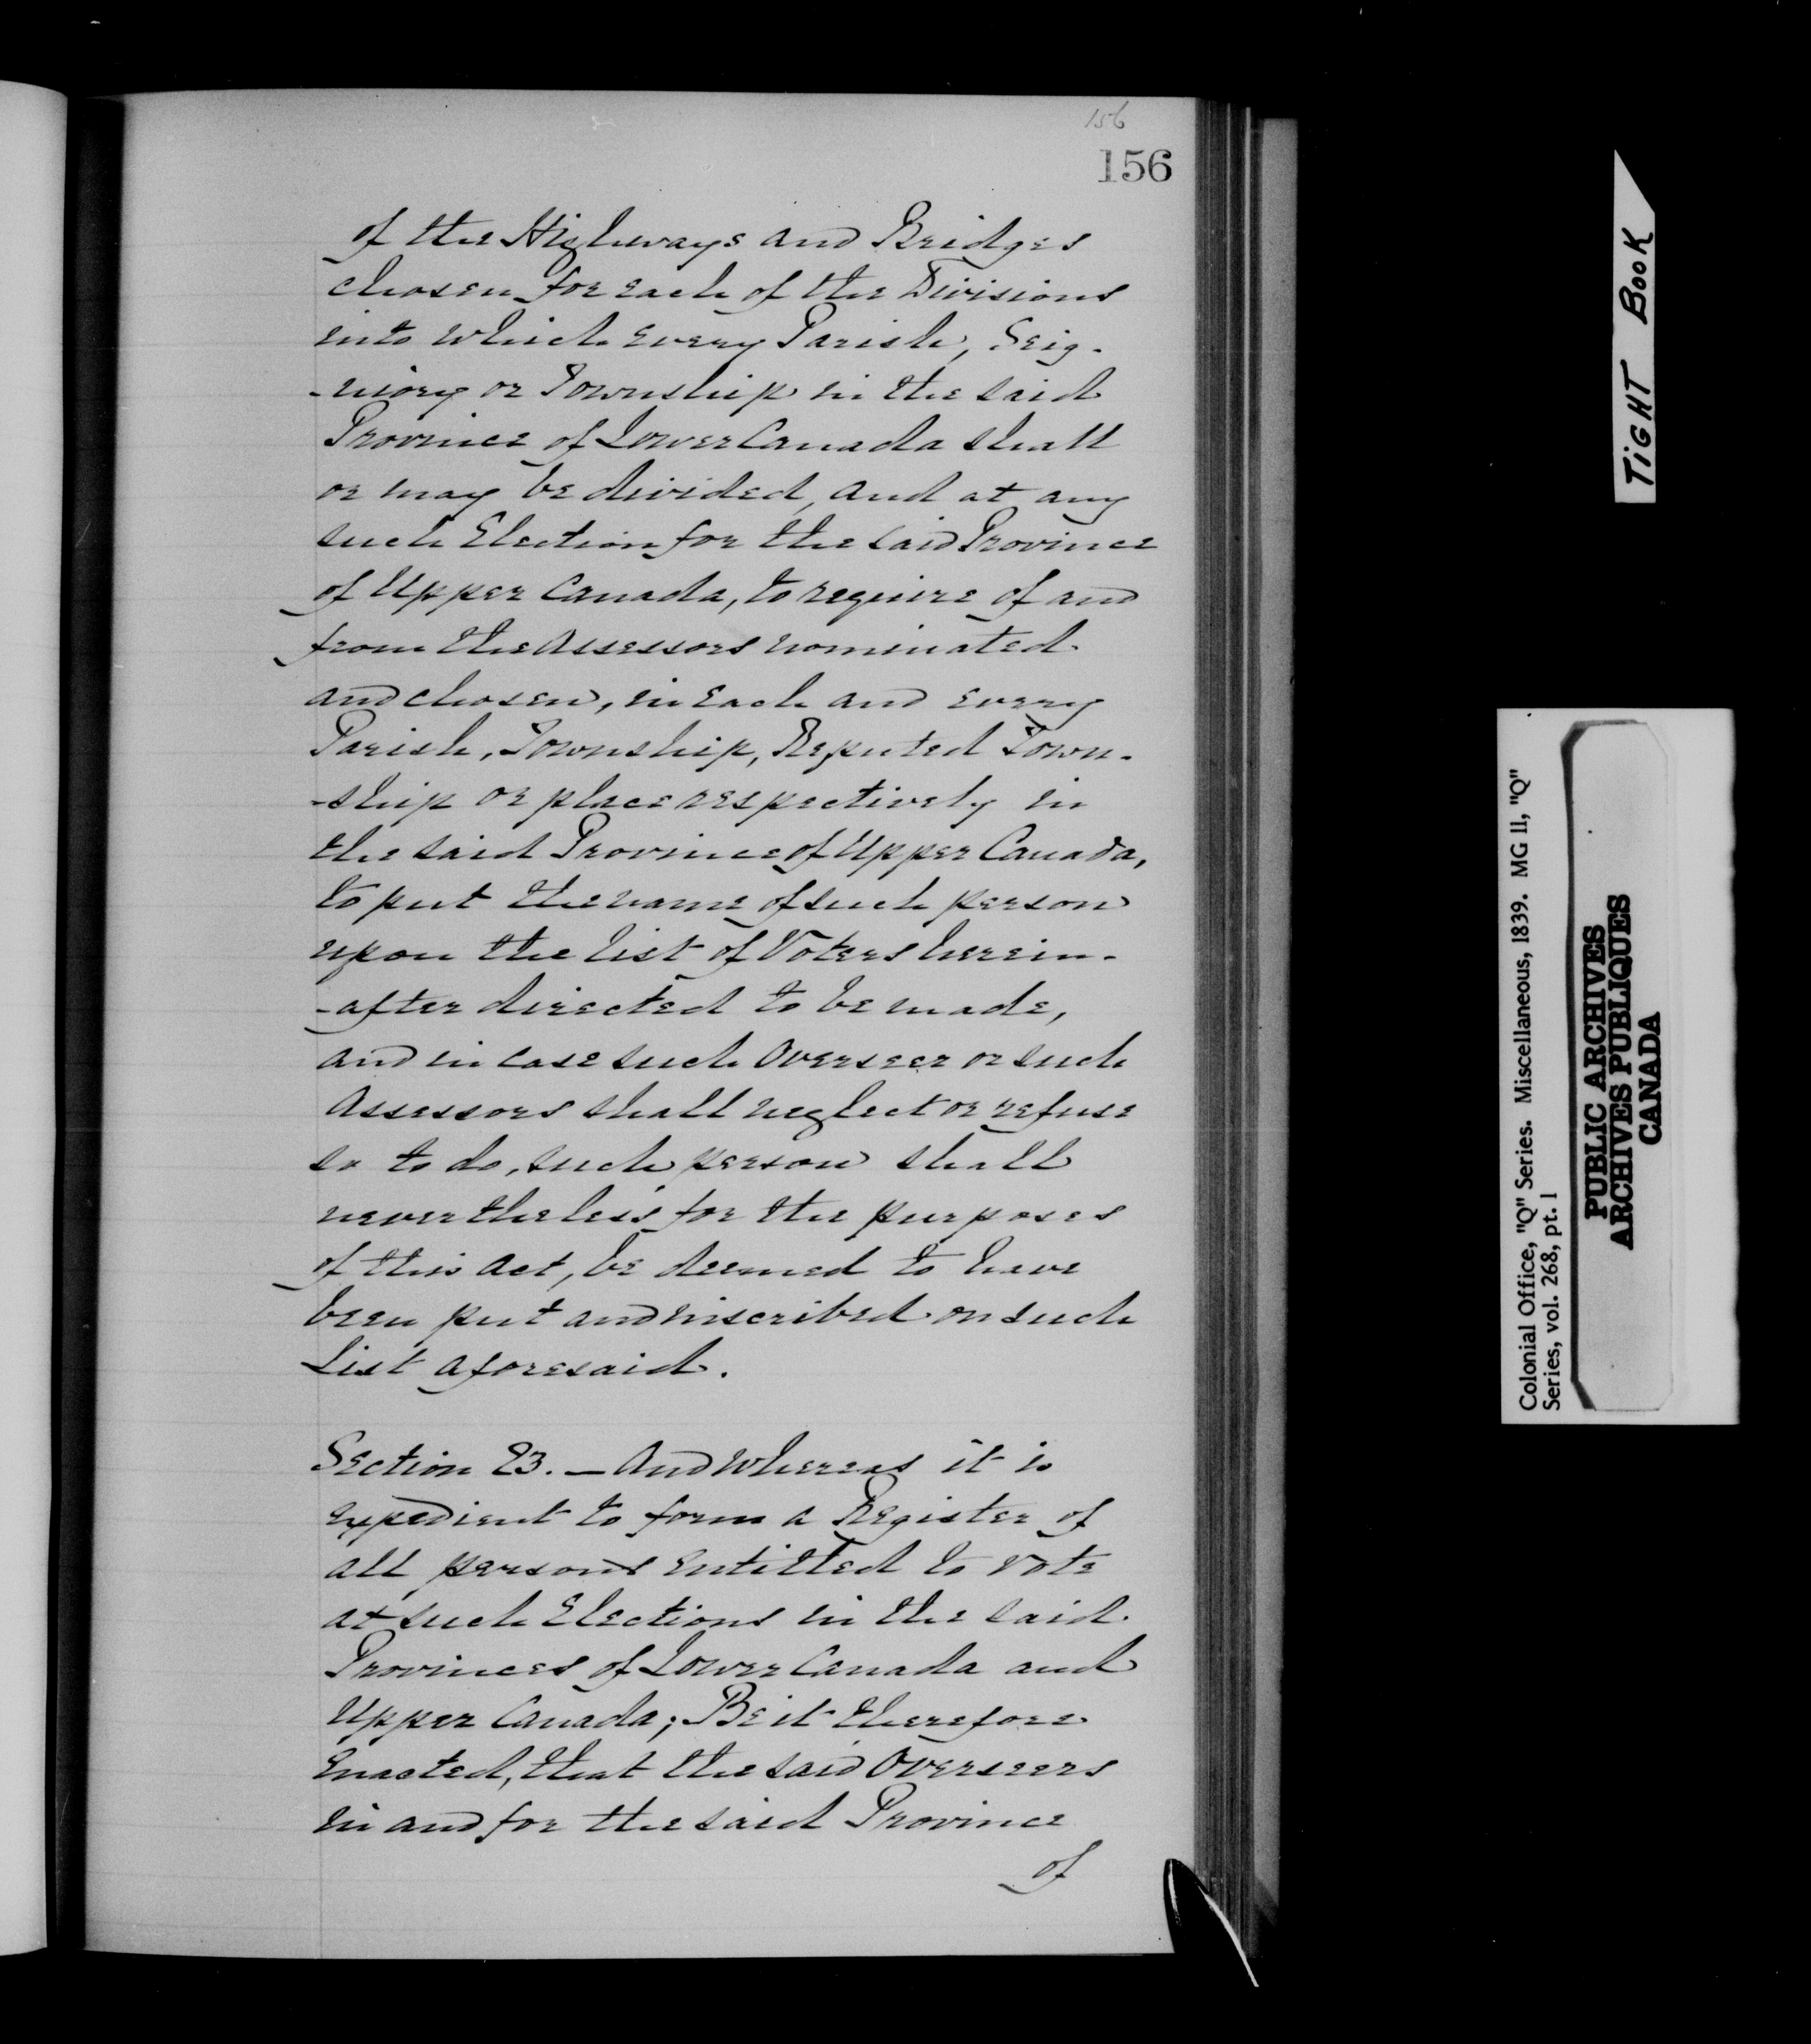 156
156
of the Highways and Bridges
chosen for each of the Divisions
into which every Parish, Seig-
-niory or Township in the said
Province of Lower Canada shall
or may be divided, and at any
such Election for the said Province
of Upper Canada, to require of and
from the Assessors nominated
and chosen, in each and every
Parish, Township, Reputed Town-
-ship or place respectively in
the said Province of Upper Canada,
to put the name of such person
upon the list of Voters herein-
-after directed to be made,
and in case such Overseer or such
Assessors shall neglect or refuse
so to do, such person shall
nevertheless for the purposes
of this Act, be deemed to have
been put and inscribed on such
List aforesaid.
Section 23. — And whereas it is
expedient to form a Register of
all persons entitled to vote
at such Elections in the said
Provinces of Lower Canada and
Upper Canada; Be it therefore
Enacted, that the said Overseers
in and for the said Province
of
TIGHT BOOK
Colonial Office, "Q" Series. Miscellaneous, 1839. MG 11, "Q"
Series, vol. 268, pt. 1
PUBLIC ARCHIVES
ARCHIVES PUBLIQUES
CANADA